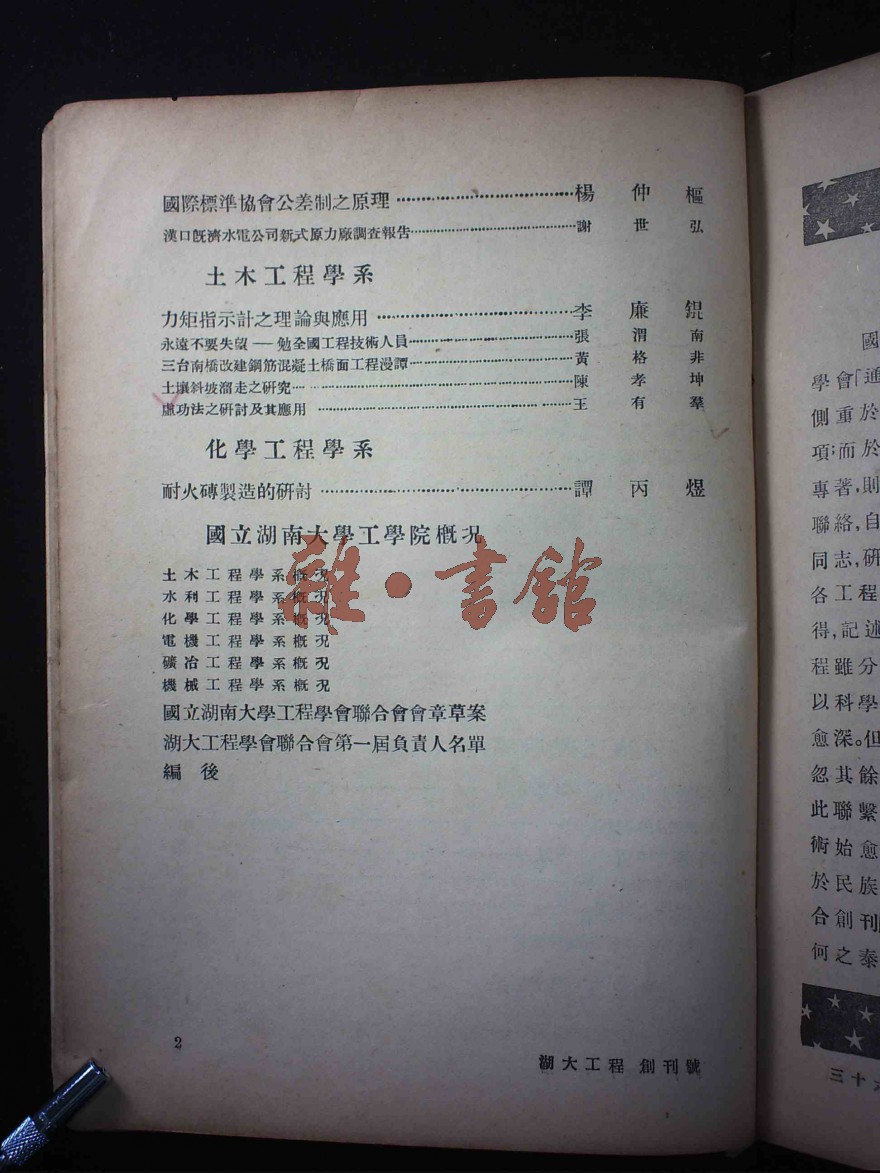 國際標準協會公差制之原理 楊仲樞
漢口旣濟水電公司新式原力廠調查報告 謝世弘
土木工程學系
力矩指示計之理論與應用 李廉錕
永遠不要失望——勉全國工程技術人員 張渭南
三台南橋改建鋼筋混凝土橋面工程漫譚 黃格非
土壤斜坡溜走之研究 陳孝坤
虛功法之研討及其應用 王有羣
化學工程學系
耐火磚製造的研討 譚丙煜
國立湖南大學工學院槪况
土木工程學系槪况
水利工程學系槪况
化學工程學系槪况
電機工程學系槪况
礦冶工程學系槪况
機械工程學系槪况
國立湖南大學工程學會聯合會會章草案
湖大工程學會聯合會第一屆負責人名單
編後
雜·書館
2
湖大工程 創刊號
國
學會「通
側重於
項;而於
專著,則
聯絡,自
同志,研
各工程
得,記述
程雖分
以科學
愈深。但
忽其餘
此聯繫
術始愈
於民族
合創刊
何之泰
三十六